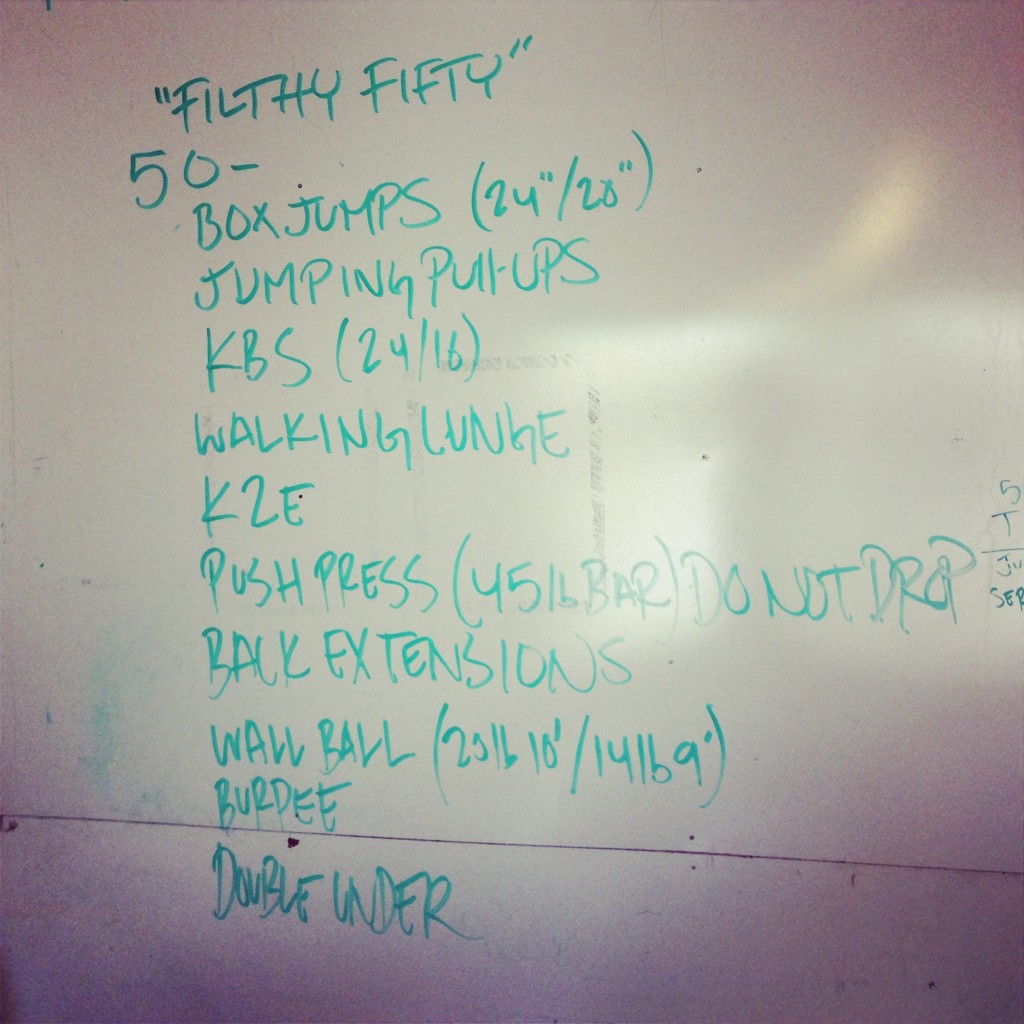 "FILTHY FIFTY"
50-
BOX JUMPS (24"/20")
JUMPING PULL-UPS
KBS (24/16)
WALKING LUNGE
K2E
PUSH PRESS (45lb BAR) DO NOT DROP
BACK EXTENSIONS
WALL BALL (20lb 10'/14lb 9')
BURPEE
DOUBLE UNDER
5
T
JU
SER